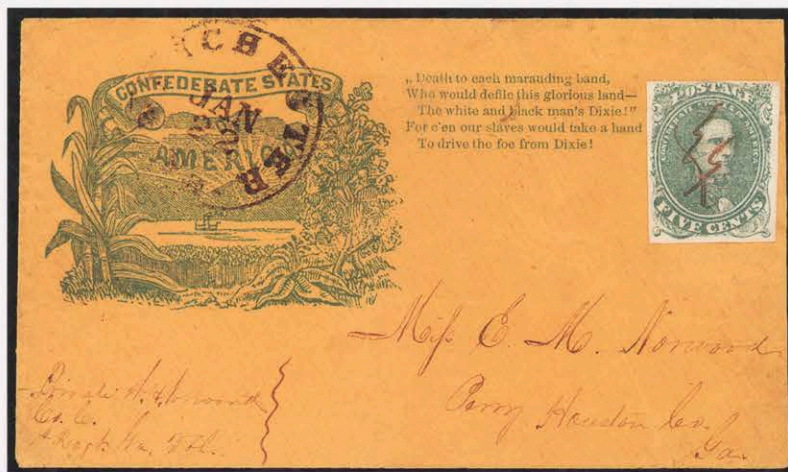 CHESTER
JAN
CONFEDERATE STATES
AMERICA
„Death to each marauding band,
Who would defile this glorious land—
The white and black man's Dixie!"
For e'en our slaves would take a hand
To drive the foe from Dixie!
POSTAGE
CONFEDERATE STATES OF AMERICA
FIVE CENTS
Miss E. M. Norwood
Perry Houston Co.
Ga.
Private Norwood
Co. C.
Ga. Vol.